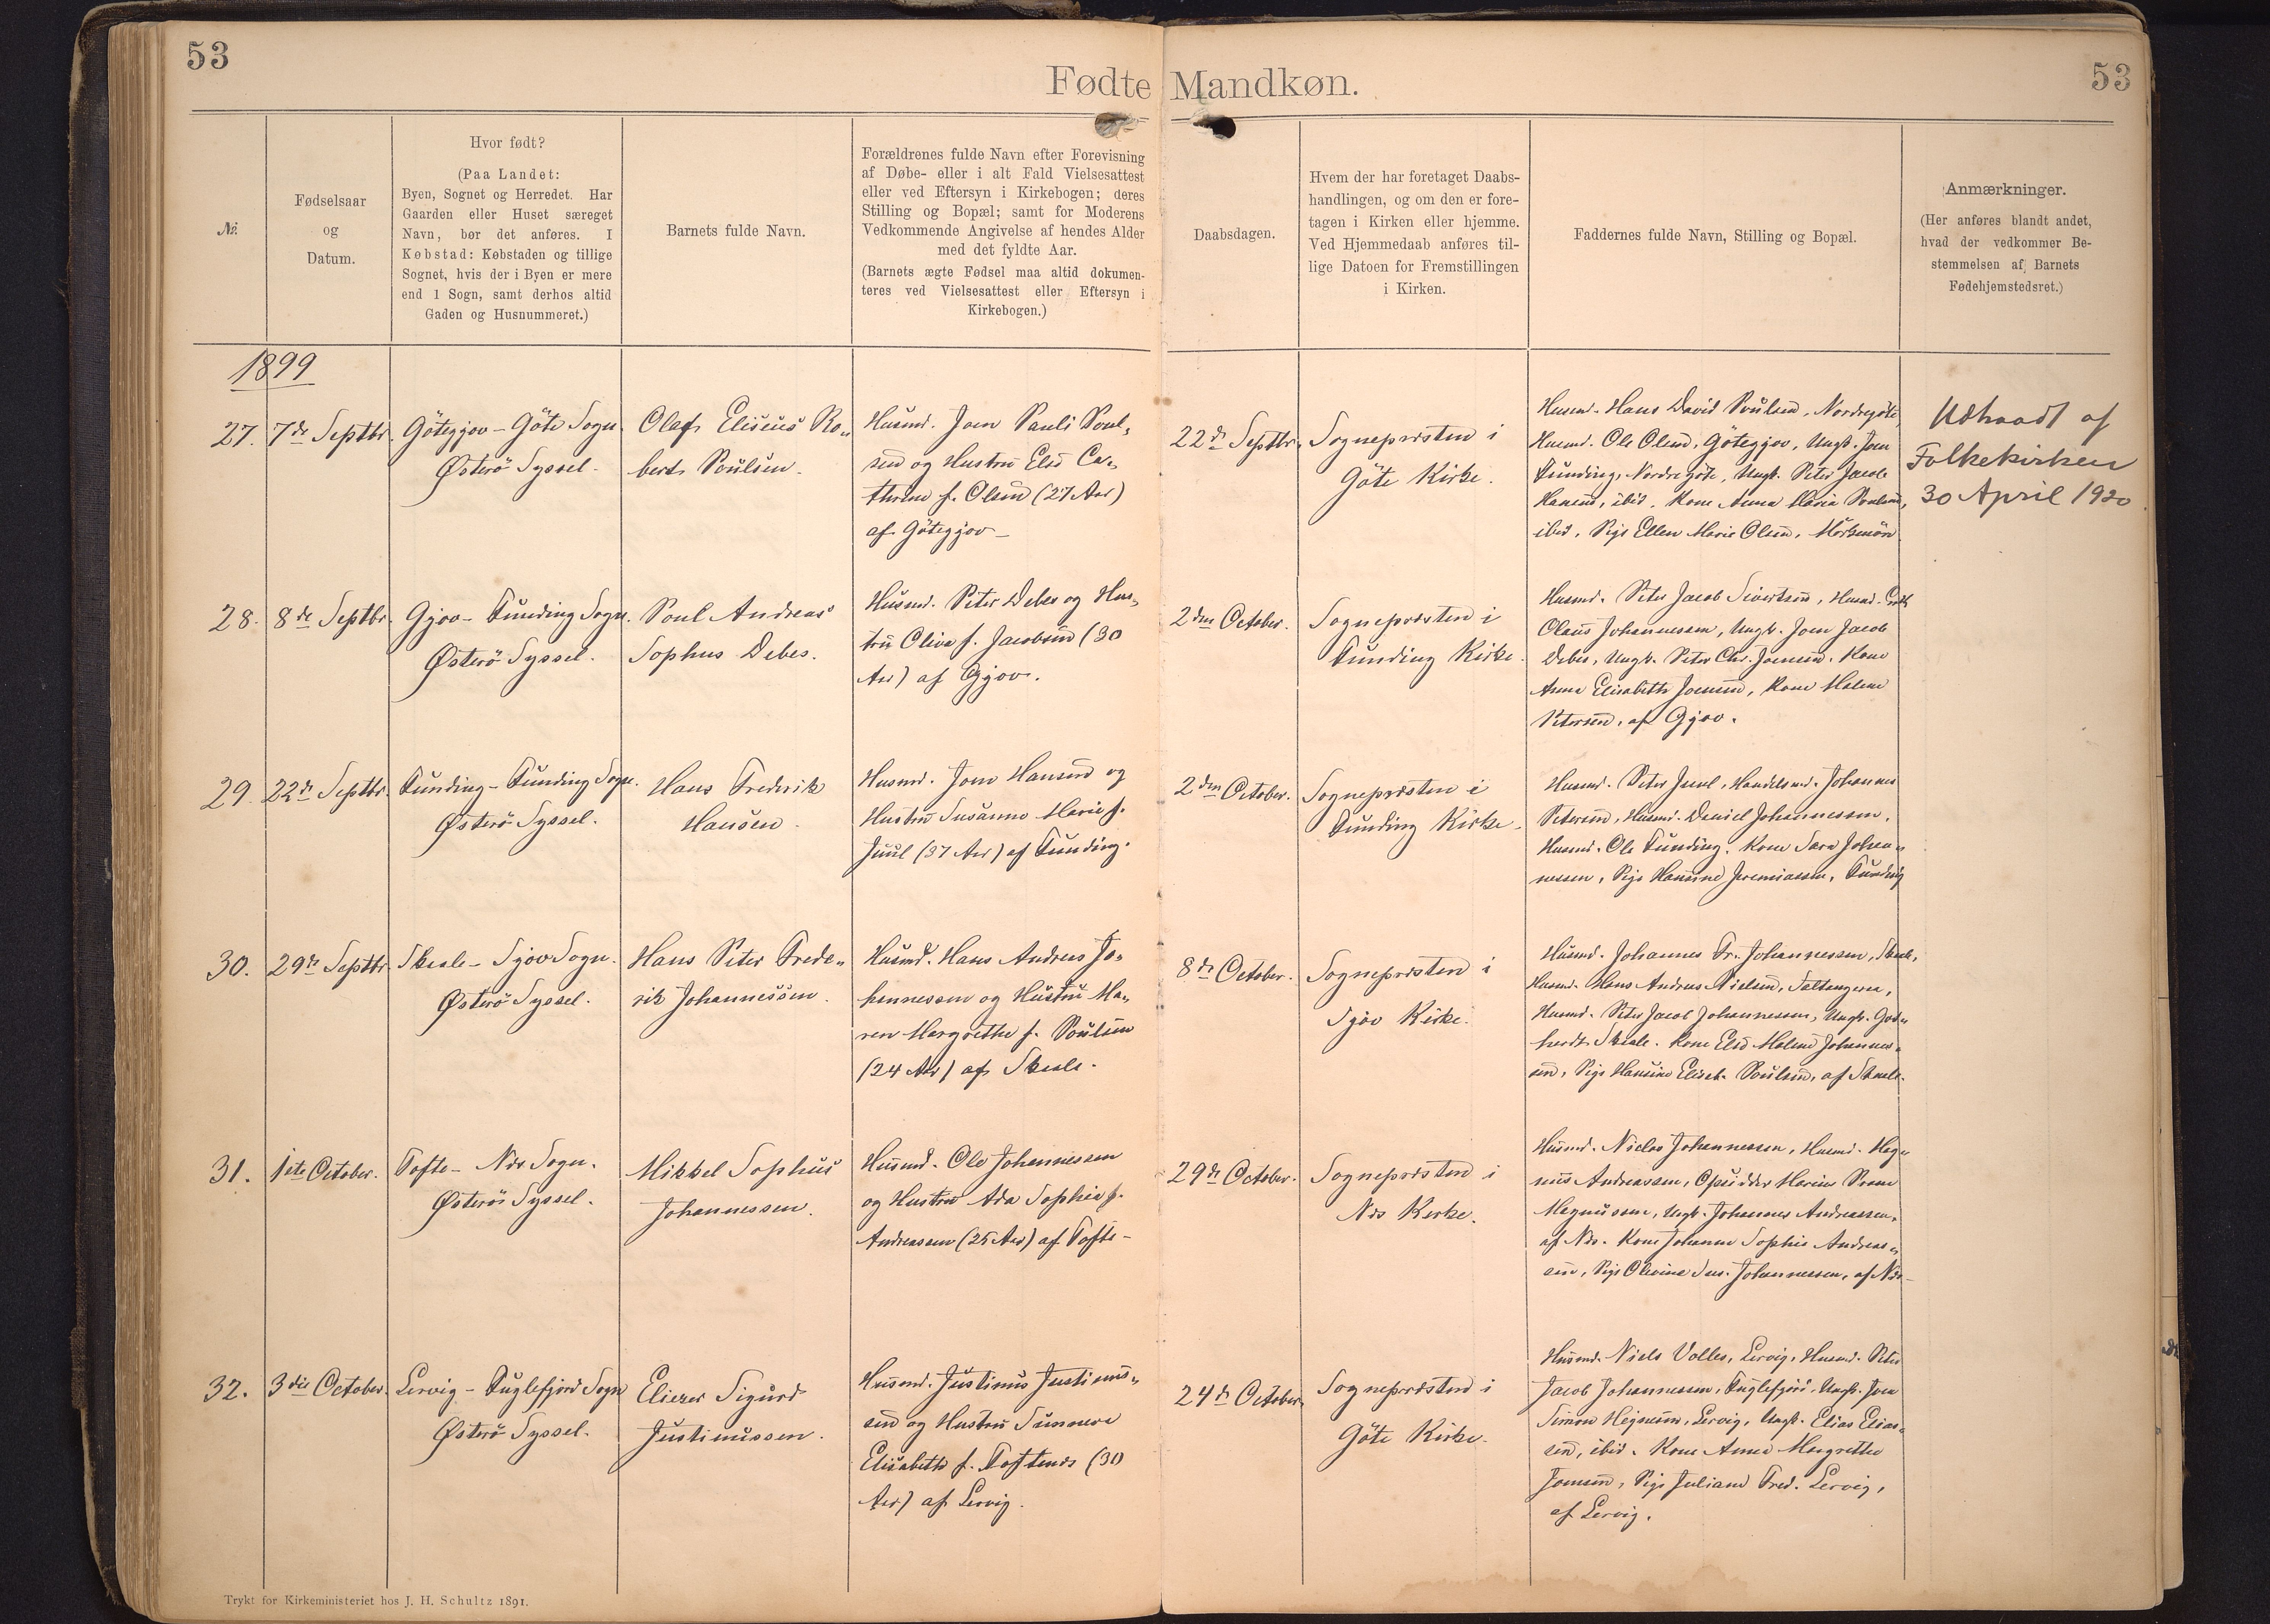 53
Fødte Mandkøn.
53
№.
Fødselsaar
og
Datum.
Hvor født?
(Paa Landet:
Byen, Sognet og Herredet. Har
Gaarden eller Huset særeget
Navn, bør det anføres. I
Købstad: Købstaden og tillige
Sognet, hvis der i Byen er mere
end 1 Sogn, samt derhos altid
Gaden og Husnummeret.)
Barnets fulde Navn.
Forældrenes fulde Navn efter Forevisning
af Døbe- eller i alt Fald Vielsesattest
eller ved Eftersyn i Kirkebogen; deres
Stilling og Bopæl; samt for Moderens
Vedkommende Angivelse af hendes Alder
med det fyldte Aar.
(Barnets ægte Fødsel maa altid dokumen-
teres ved Vielsesattest eller Eftersyn i
Kirkebogen.)
Daabsdagen.
Hvem der har foretaget Daabs-
handlingen, og om den er fore-
tagen i Kirken eller hjemme.
Ved Hjemmedaab anføres til-
lige Datoen for Fremstillingen
i Kirken.
Faddernes fulde Navn, Stilling og Bopæl.
Anmærkninger.
(Her anføres blandt andet,
hvad der vedkommer Be-
stemmelsen af Barnets
Fødehjemstedsret.)
1899
27.
7de Septbr.
Götegjov - Göte Sogn
Österö Syssel.
Olaf Eliseus Ro-
bert Poulsen.
Husmd. Joen Pauli Poul-
sen og Hustru Else Ca-
thrine f. Olsen (27 Aar)
af Götegjov -
22de Septbr.
Sognepræsten i
Göte Kirke.
Husmd. Hans David Poulsen, Nordregöte,
Husmd. Ole Olsen, Götegjov, Ungk. Joen
Funding, Nordregöte, Ungk. Peter Jacob
Hansen, ibid. Kone Anna Maria Poulsen,
ibid, Pige Ellen Marie Olsen,
Udtraadt af
Folkekirken
30 April 1920
28.
8de Septbr.
Gjov - Funding Sogn.
Österö Syssel.
Poul Andreas
Sophus Debes.
Husmd. Peter Debes og Hus-
tru Oliva f. Jacobsen (30
Aar) af Gjov.
2den October.
Sognepræsten i
Funding Kirke.
Husmd. Peter Jacob Sivertsen, Husmd.
Olaus Johannessen, Ungk. Joen Jacob
Debes, Ungk. Peter Chr. Joensen, Kone
Anna Elisabeth Joensen, Kone Malene
Petersen, af Gjov.
29.
22de Septbr.
Funding - Funding Sogn.
Österö Syssel.
Hans Frederik
Hansen.
Husmd. Joen Hansen og
Hustru Susanne Marie f.
Juul (37 Aar) af Funding.
2den October.
Sognepræsten i
Funding Kirke.
Husmd. Peter Juul, Handelsmd. Johannes
Petersen, Husmd. Daniel Johannessen,
Husmd. Ole Funding. Kone Sara Johan-
nessen, Pige Hansine Jeremiassen, Funding
30.
29de Septbr.
Skaale - Sjov Sogn.
Österö Syssel.
Hans Peter Frede-
rik Johannessen.
Husmd. Hans Andreas Jo-
hannessen og Hustru Ma-
ren Margrethe f. Poulsen
(24 Aar) af Skaale.
8de October.
Sognepræsten i
Sjov Kirke.
Husmd. Johannes Fr. Johannessen, Skaale,
Husmd. Hans Andreas Nielsen, Saltangeraa,
Husmd. Peter Jacob Johannessen, Ungk. God-
Skaale. Kone Else Malene Johannes-
sen, Pige Hansine Elisab. Poulsen, af Skaale.
31.
1ste October.
Tofte - Næs Sogn.
Österö Syssel.
Mikkel Sophus
Johannessen.
Husmd. Ole Johannessen
og Hustru Ada Sophie f.
Andreassen (25 Aar) af Tofte -
29de October.
Sognepræsten i
Næs Kirke.
Husmd. Niclas Johannessen, Husmd. Mag-
nus Andreassen, Opsidder Marius
Magnussen, Ungk. Johannes Andreassen,
af Næs. Kone Johanne Sophie Andreas-
sen, Pige Olevine Sus. Johannessen, af Næs -
32.
3die October.
Lervig - Fuglefjord Sogn
Österö Syssel.
Eliezer Sigurd
Justinussen.
Husmd. Justinus Justinus-
sen og Hustru Sunneva
Elisabeth f. Toftenæs (30
Aar) af Lervig.
24de October.
Sognepræsten i
Göte Kirke.
Husmd. Niels Volles, Lervig, Husmd. Peter
Jacob Johannessen, Fuglefjord, Ungk. Joen
Simon Hejnesen, Lervig, Ungk. Elias Elias-
sen, ibid. Kone Anna Margrethe
Joensen, Pige Juliane Fred. Lervig,
af Lervig.
Trykt for Kirkeministeriet hos J. H. Schultz 1891.